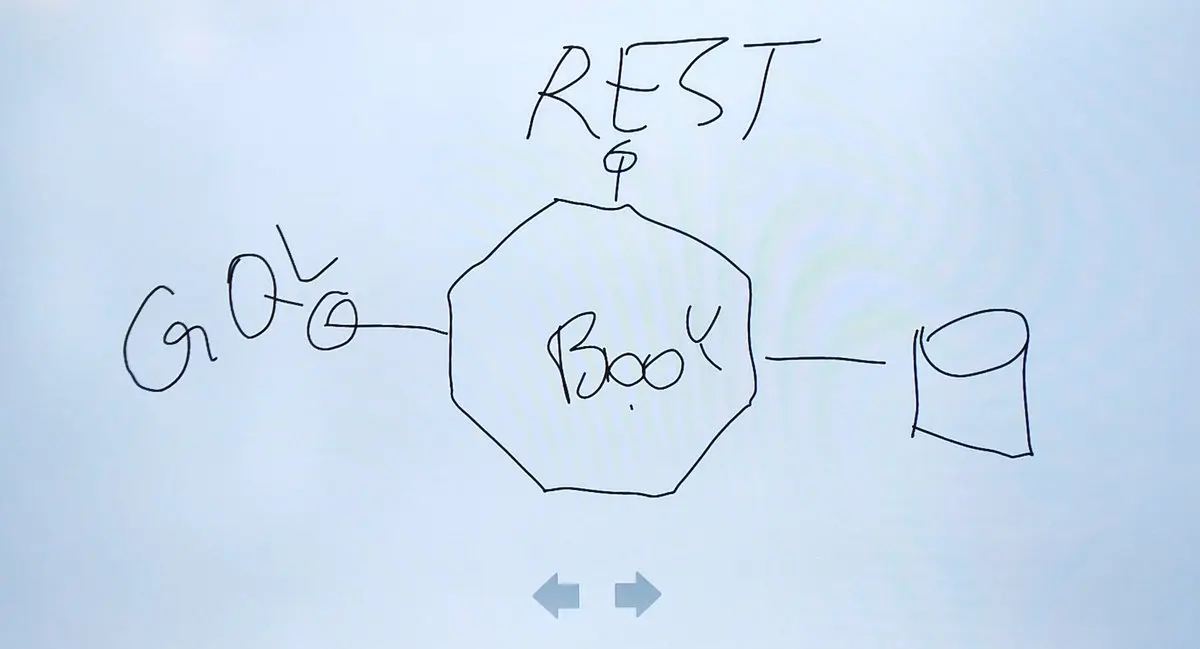 REST
GQL
Book